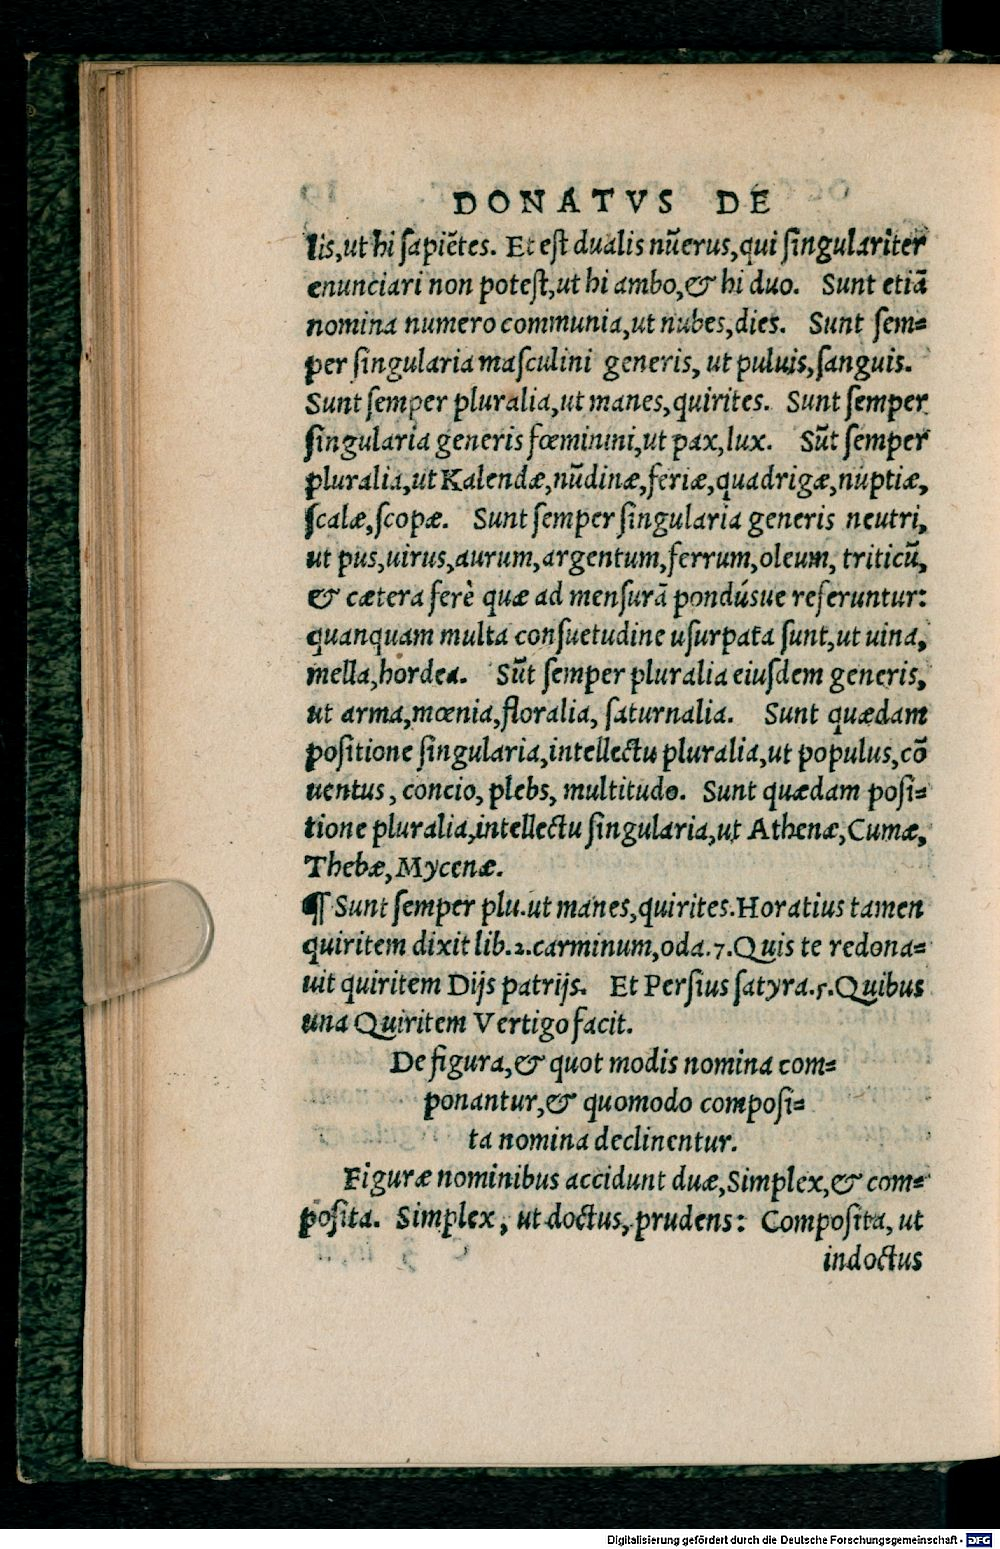 DONATVS DE
lis,ut hi sapiētes. Et est dualis nūerus,qui singulariter
enunciari non potest,ut hi ambo,& hi duo. Sunt etiā
nomina numero communia,ut nubes,dies. Sunt sem=
per singularia masculini generis, ut puluis,sanguis.
Sunt semper pluralia,ut manes,quirites. Sunt semper
singularia generis fœminini,ut pax,lux. Sūt semper
pluralia,ut Kalendæ,nūdinæ,feriæ,quadrigæ,nuptiæ,
scalæ,scopæ. Sunt semper singularia generis neutri,
ut pus,uirus,aurum,argentum,ferrum,oleum, triticū,
& cætera ferè quæ ad mensurā pondúsue referuntur:
quanquam multa consuetudine usurpata sunt,ut uina,
mella,hordea. Sūt semper pluralia eiusdem generis,
ut arma,mœnia,floralia, saturnalia. Sunt quædam
positione singularia,intellectu pluralia,ut populus,cō
uentus, concio, plebs, multitudo. Sunt quædam posi=
tione pluralia,intellectu singularia,ut Athenæ,Cumæ,
Thebæ,Mycenæ.
¶ Sunt semper plu.ut manes,quirites.Horatius tamen
quiritem dixit lib.2.carminum,oda.7.Quis te redona=
uit quiritem Dijs patrijs. Et Persius satyra.5.Quibus
una Quiritem Vertigo facit.
De figura,& quot modis nomina com=
ponantur,& quomodo composi=
ta nomina declinentur.
Figuræ nominibus accidunt duæ,Simplex,& com=
posita. Simplex, ut doctus, prudens: Composita, ut
indoctus
Digitalisierung gefördert durch die Deutsche Forschungsgemeinschaft - DFG